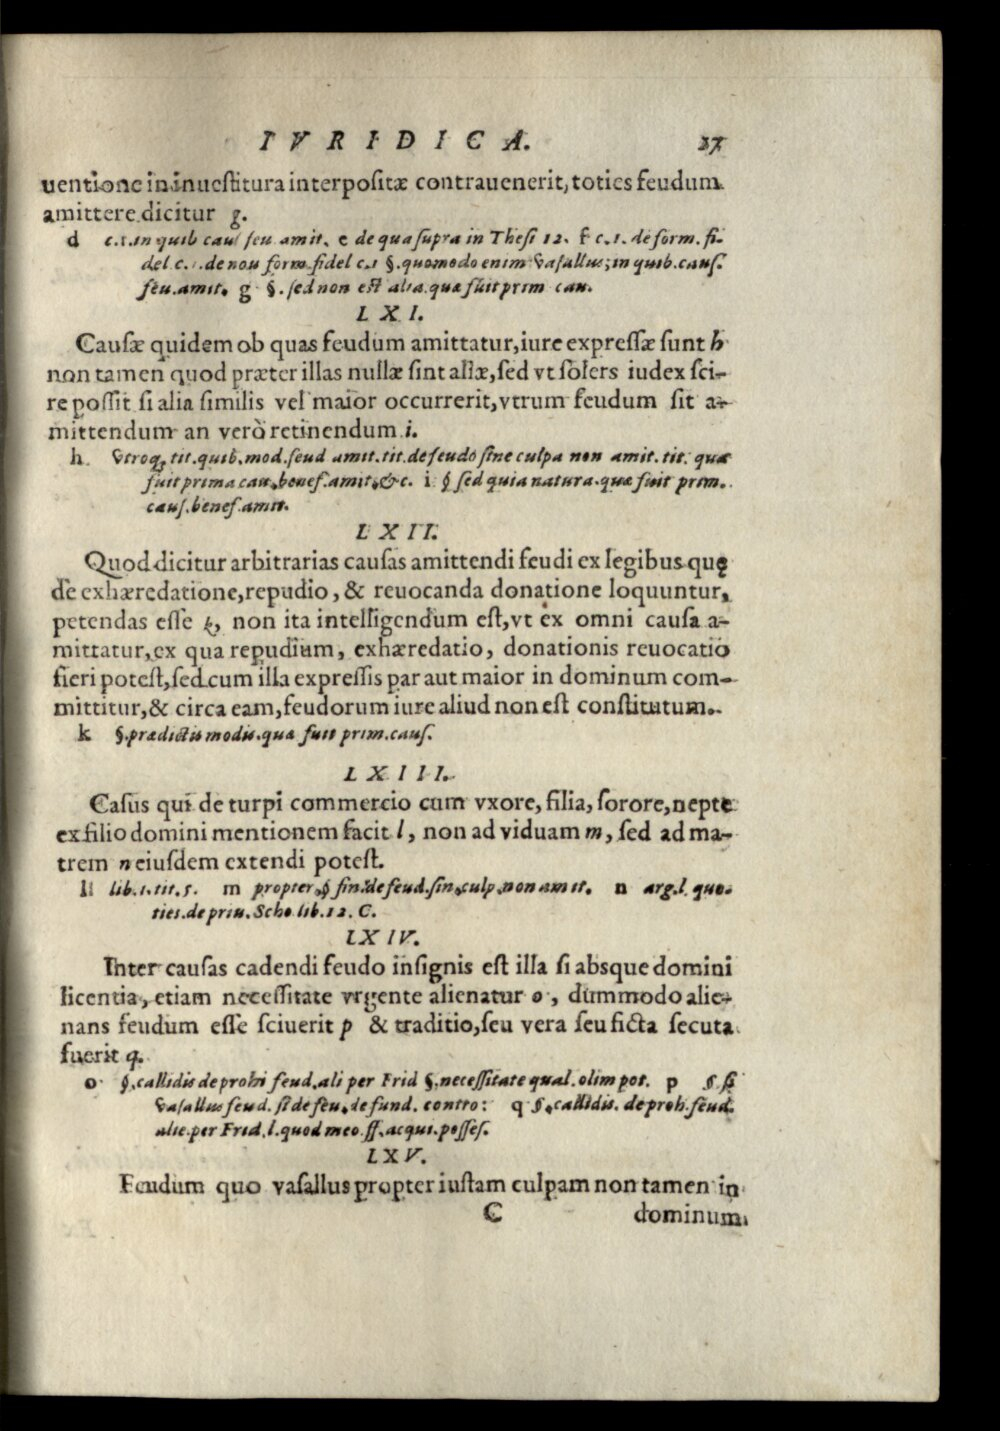 IVRIDICA. 17
uentione in inuestitura interpositæ contrauenerit, toties feudum
amittere dicitur g.
d c.1.in quib cau seu amit. e de qua supra in Thesi 12. f c.1. de form. fi-
del c.1.de nou form.fidel c.1 §.quomodo enim Vasallus; in quib.caus.
feu.amit. g §.sed non est alia.quæ fuit prim cau.
LXI.
Causæ quidem ob quas feudum amittatur, iure expressæ sunt h
non tamen quod præter illas nullæ sint aliæ, sed vt solers iudex sci-
re possit si alia similis vel maior occurrerit, vtrum feudum sit a-
mittendum an verò retinendum i.
h Vtroq; tit.quib.mod.feud amit.tit.de feudo sine culpa non amit.tit. quæ
fuit prima cau.benef.amit.&c. i § sed quia natura.quæ fuit prim.
caus.benef.amit.
LXII.
Quod dicitur arbitrarias causas amittendi feudi ex legibus quę
de exhæredatione, repudio, & reuocanda donatione loquuntur,
petendas esse k, non ita intelligendum est, vt ex omni causa a-
mittatur, ex qua repudium, exhæredatio, donationis reuocatio
fieri potest, sed cum illa expressis par aut maior in dominum com-
mittitur, & circa eam, feudorum iure aliud non est constitutum.
k §.prædictis modis.quæ fuit prim.caus.
LXIII.
Casus qui de turpi commercio cum vxore, filia, sorore, nepte
ex filio domini mentionem facit l, non ad viduam m, sed ad ma-
trem n eiusdem extendi potest.
l lib.1.tit.5. m propter § fin. de feud.sin.culp.non amit. n arg.l. quo-
ties.de priu. Scho lib.12. C.
LXIV.
Inter causas cadendi feudo insignis est illa si absque domini
licentia, etiam necessitate vrgente alienatur o, dummodo alie-
nans feudum esse sciuerit p & traditio, seu vera seu ficta secuta
fuerit q.
o §.callidis de prohi feud.ali per Frid §.necessitate qual.olim pot. p §.si
Vasallus feud. si de feu.defund. contro: q §.callidis. de proh.feud.
alie.per Frid.l.quod meo.ff.acqui.posses.
LXV.
Feudum quo vasallus propter iustam culpam non tamen in
C dominum